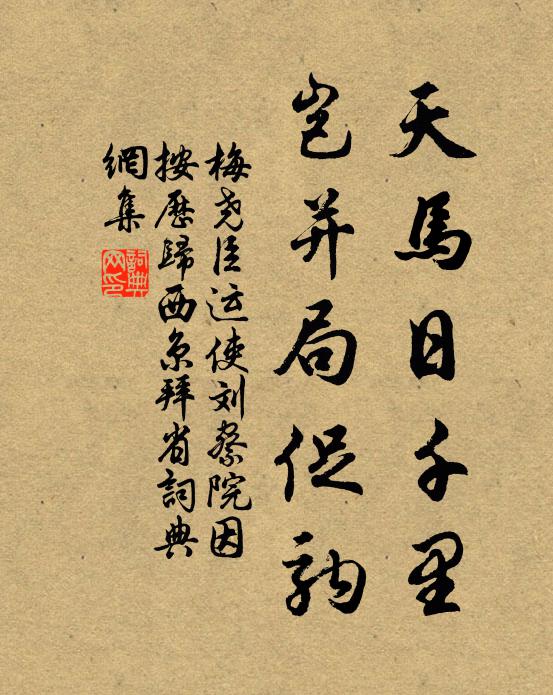 天馬日千里
岂并局促駒
梅尧臣运使刘察院因
按歷歸西京拜省詞典
網集
詞典
网印